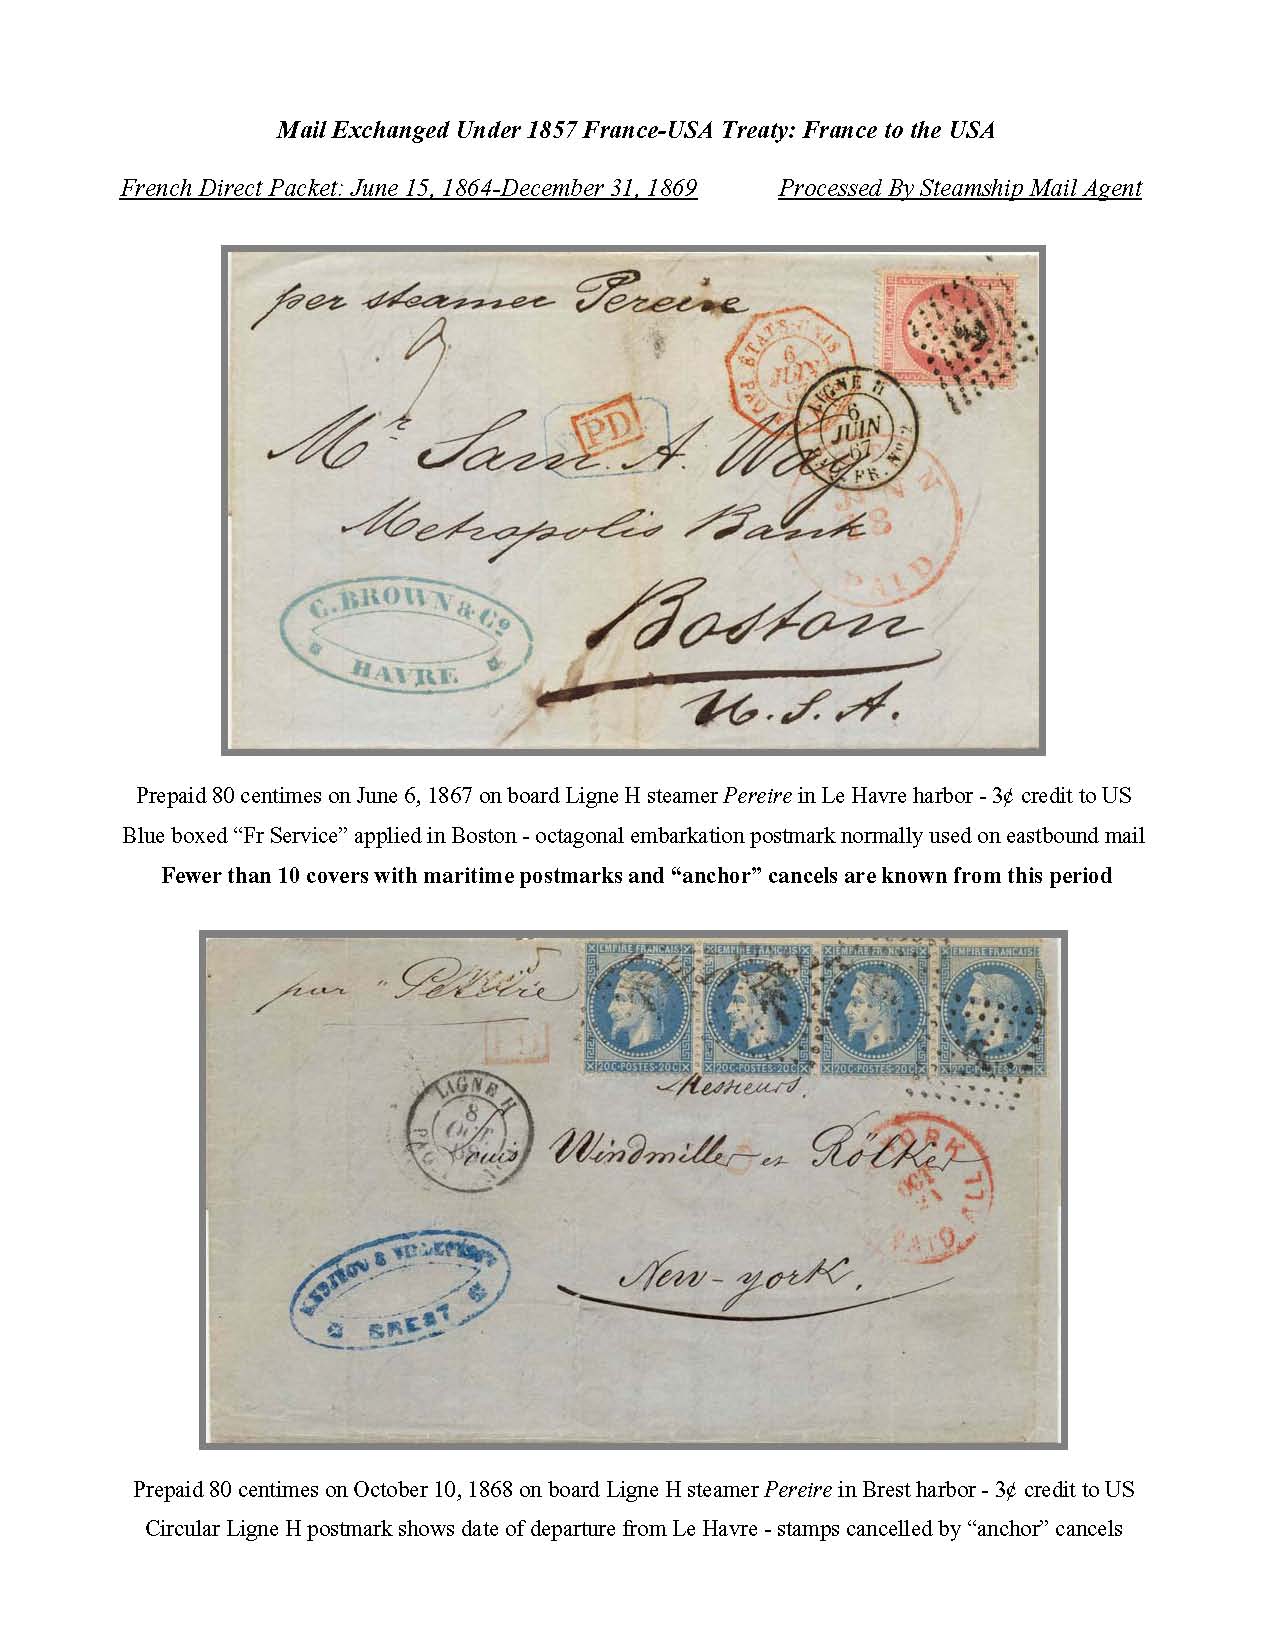 Mail Exchanged Under 1857 France-USA Treaty: France to the USA
French Direct Packet: June 15, 1864-December 31, 1869
Processed By Steamship Mail Agent
per steamer Pereire
ÉTATS-UNIS
6
JUIN
67
EMPIRE FRANC
LIGNE H
6
JUIN
67
FR. Nº
PD
Mr Sam. A. Way
Metropolis Bank
18
PAID
Boston
U.S.A.
C. BROWN & Cº
HAVRE
Prepaid 80 centimes on June 6, 1867 on board Ligne H steamer Pereire in Le Havre harbor - 3¢ credit to US
Blue boxed “Fr Service” applied in Boston - octagonal embarkation postmark normally used on eastbound mail
Fewer than 10 covers with maritime postmarks and “anchor” cancels are known from this period
par "Pereire
EMPIRE FRANÇAIS
EMPIRE FRANÇAIS
EMPIRE FRANÇAIS
EMPIRE FRANÇAIS
20C-POSTES-20C
20C-POSTES-20C
20C-POSTES-20C
20C-POSTES-20C
PD
Messieurs.
LIGNE H
8
OCT.
68
Louis Windmiller et Rölker
YORK
OCT
21
PAID ALL
New-york.
BREST
Prepaid 80 centimes on October 10, 1868 on board Ligne H steamer Pereire in Brest harbor - 3¢ credit to US
Circular Ligne H postmark shows date of departure from Le Havre - stamps cancelled by “anchor” cancels